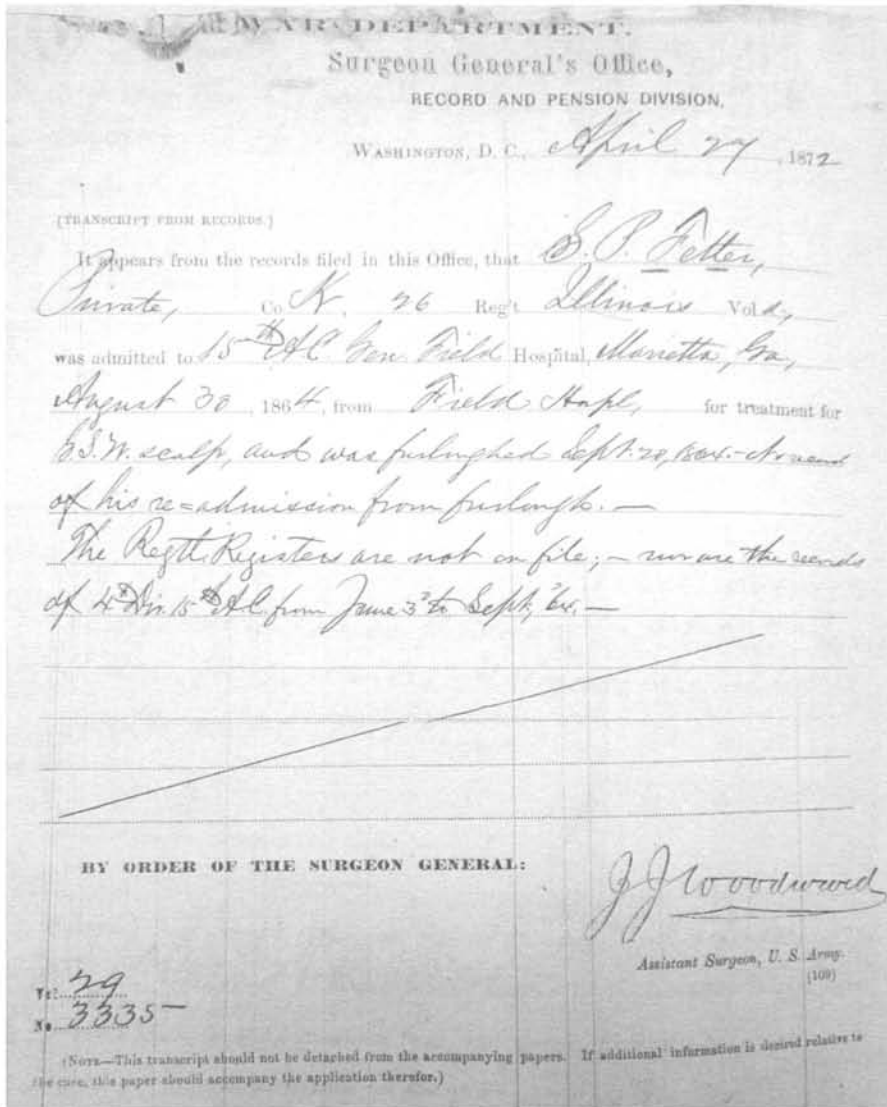 WAR DEPARTMENT.
Surgeon General's Office,
RECORD AND PENSION DIVISION,
WASHINGTON, D. C., April 27, 1872
(TRANSCRIPT FROM RECORDS.)
It appears from the records filed in this Office, that S. P. Fetter,
Private, Co K, 26 Reg't Illinois Vols,
was admitted to 15th A.C. Gen. Field Hospital, Marietta, Ga,
August 30, 1864, from Field Hspl, for treatment for
G.S.W. scalp, and was furloughed Sept. 20, 1864. - No record
of his re=admission from furlough. —
The Regtl. Registers are not on file; - nor are the records
of 4th Div. 15th A.C. from June 3d to Sept, '64. —
BY ORDER OF THE SURGEON GENERAL:
J J Woodward
Assistant Surgeon, U. S. Army.
(109)
29
No 3335
(NOTE—This transcript should not be detached from the accompanying papers. If additional information is desired relative to
the case, this paper should accompany the application therefor.)